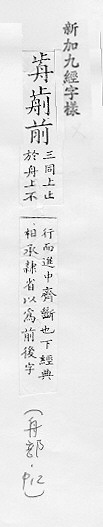 新加九經字樣
歬歬刂前
三同上止
於舟上不
行而進中齊斷也下經典
相承隸省以爲前後字
(舟部．P.12)